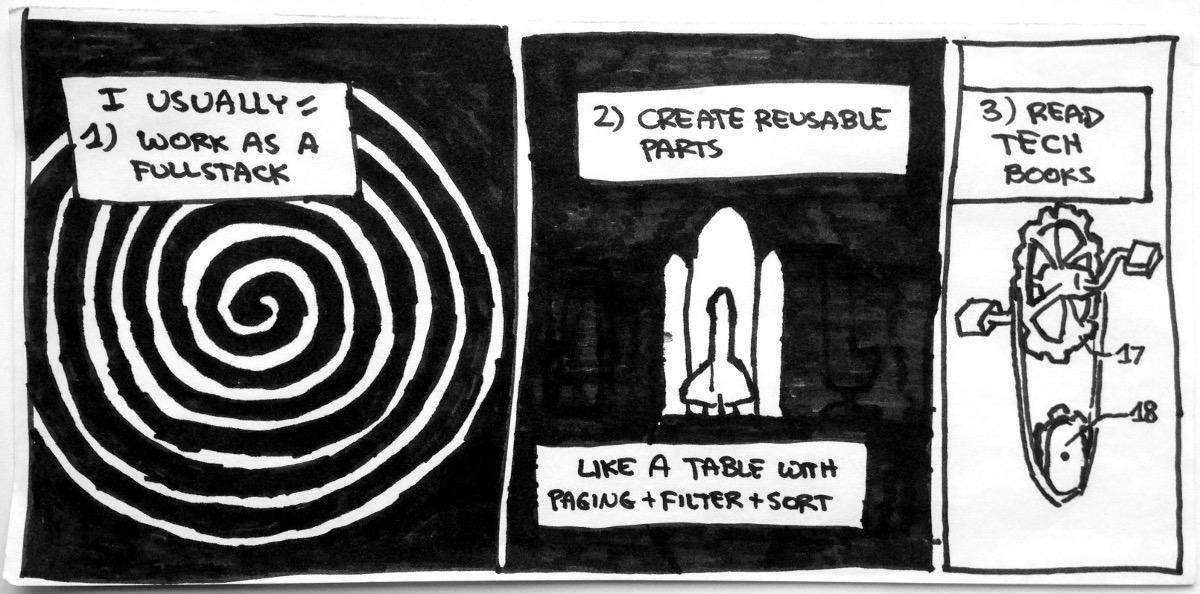 I USUALLY =
1) WORK AS A
FULLSTACK
2) CREATE REUSABLE
PARTS
LIKE A TABLE WITH
PAGING + FILTER + SORT
3) READ
TECH
BOOKS
17
18